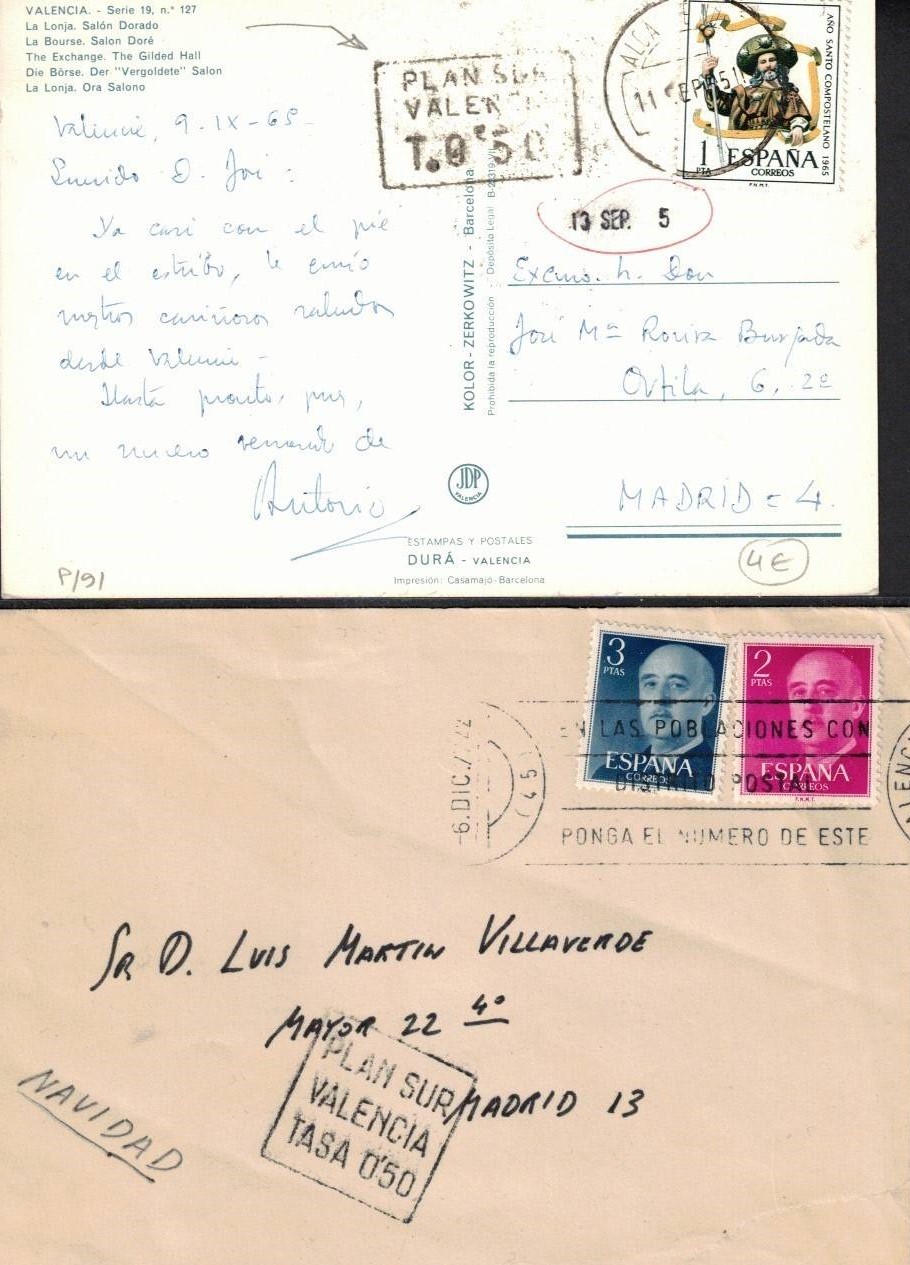 VALENCIA. - Serie 19, n.° 127
La Lonja. Salón Dorado
La Bourse. Salon Doré
The Exchange. The Gilded Hall
Die Börse. Der "Vergoldete" Salon
La Lonja. Ora Salono
PLAN SUR
VALENCI
T. 0'50
11 SEP
AÑO SANTO COMPOSTELANO 1965
1 PTA
ESPAÑA
CORREOS
F.N.M.T.
13 SEP. 5
Valencia, 9-IX-65
Querido D. José:
Ya casi con el pie
en el estribo, le envío
nuestros cariñosos saludos
desde Valencia -
Hasta pronto, pues,
un nuevo recuerdo de
Antonio
KOLOR-ZERKOWITZ - Barcelona
Prohibida la reproducción - Depósito Legal
Excmo. Sr. Don
José Mª Rovira Burgada
6, 2º
MADRID = 4.
JDP
VALENCIA
ESTAMPAS Y POSTALES
DURÁ - VALENCIA
Impresión: Casamajó-Barcelona
P/91
4€
3 PTAS
ESPAÑA
CORREOS
2 PTAS
ESPAÑA
CORREOS
F.N.M.T.
6.DIC.
EN LAS POBLACIONES CON
DISTRITO POSTAL
PONGA EL NUMERO DE ESTE
SR D. LUIS MARTIN VILLAVERDE
MAYOR 22 4º
MADRID 13
PLAN SUR
VALENCIA
TASA 0'50
NAVIDAD